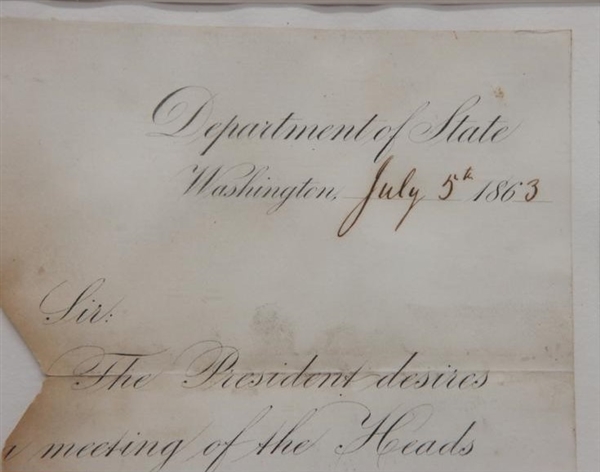 Department of State
Washington, July 5th 1863
Sir:
The President desires
a meeting of the Heads